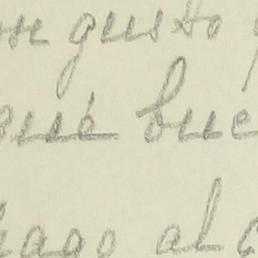 gusto
qué bue
hago al